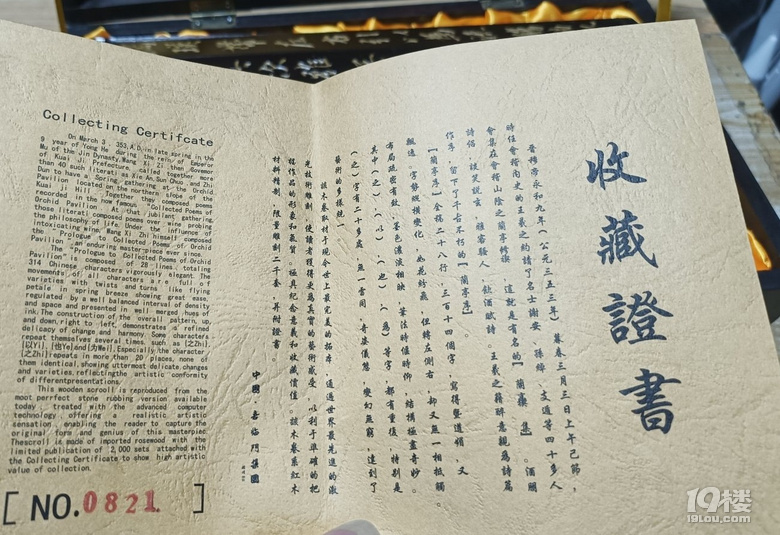 Collecting Certifcate
On March 3, 353,A.D.in late spring in the
9 year of Yong He during the reing of Emperor
Mu of the Jin Dynasty,Wang Xi Zhi then Governor
of Kuai Ji Prefacture, called together more
than 40 such literati as Xie An,Sun Chuo, and Zhi
Dun to have a Spring gathering at the Orchid
Pavilion located on the northern slope of the
Kuai ji Hill. Together they composed poems
recorded in the now famous "Collected Poems of
Orchid Pavilion". At that jubilant gathering
those literati composed poems over win probing
the philosophy of life. Under the influence of
intoxicating wine, Wang Xi Zhi himself cumposed
the "Prologue to Collected Poems of Orchid
Pavilion", an enduring masterpiece ever since.
The "Prologue to Collected Poems of Orchid
Pavilion" is composed of 28 lines, totaling
314 Chinese characters vigorously elegant. The
movements of all characters are full of
varieties with twists and turns like flying
petale in spring breeze showing great ease,
regulated by a well balanced interval of density
and space and presented in well merged hues of
ink.The construction of the overall pattern, up
and down,right to left, demonstrates a refined
delicacy of change and harmony. Some characters
repeat themselves several times, such as [之Zhi],
[以Yi], [也Ye]and[为Wei].Especially the character
[之Zhi]repeats in more than 20 places, none of
them identical, showing uttermost delicate changes
and varieties, reflecting the artistic conformity
of differentpresentations.
This wooden scrooll is reproduced from the
most perrfect stone rubbing version available
today, treated with the advanced computer
technology offering a realistic artistic
sensation, enabling the reader to capture the
original form and genius of this masterpiec.
Thescroll is made of imported rosewood with the
limited publication of 2,000 sets attached with
the Collecting Certificate to show high artistic
value of collection.
[ NO.0821 ]
收藏證書
晉穆帝永和九年(公元三五三年)暮春三月三日上午己節，
時任會稽內史的王羲之約請了名士謝安、孫綽、支遁等四十多人
會集在會稽山陰之蘭亭修禊，這就是有名的【蘭禊集】。酒酣
詩侶，談笑說玄，雅客騷人，飲酒賦詩。王羲之藉醉意親爲詩篇
作序，留下了千古不朽的【蘭亭序】。
【蘭亭序】全稿二十八行，三百十四個字，寫得豎道媚，又
飄逸。字勢縱橫變化，如花紛飛，但轉左側右，却又無一相抵觸。
布局疏密有致，墨色濃淡相映，筆法時偃時仰，結構極盡奇妙。
其中(之)、(以)、(也)、(爲)等字，都有重復，特別是
(之)字有二十多處，無一雷同，奇姿儀態，變幻無窮，達到了
藝術的多樣統一。
該木卷取材于現今世上最完美的拓本，通過世界最先進的激
光技術雕制，使讀者獲得更爲真實的藝術感受，以利于準確的把
握作品的形象和氣質。極具紀念意義和收藏價值。該木卷系紅木
材料精制，限量雕制二千套，并附證書。
中國·喜臨門集團
19楼
19lou.com